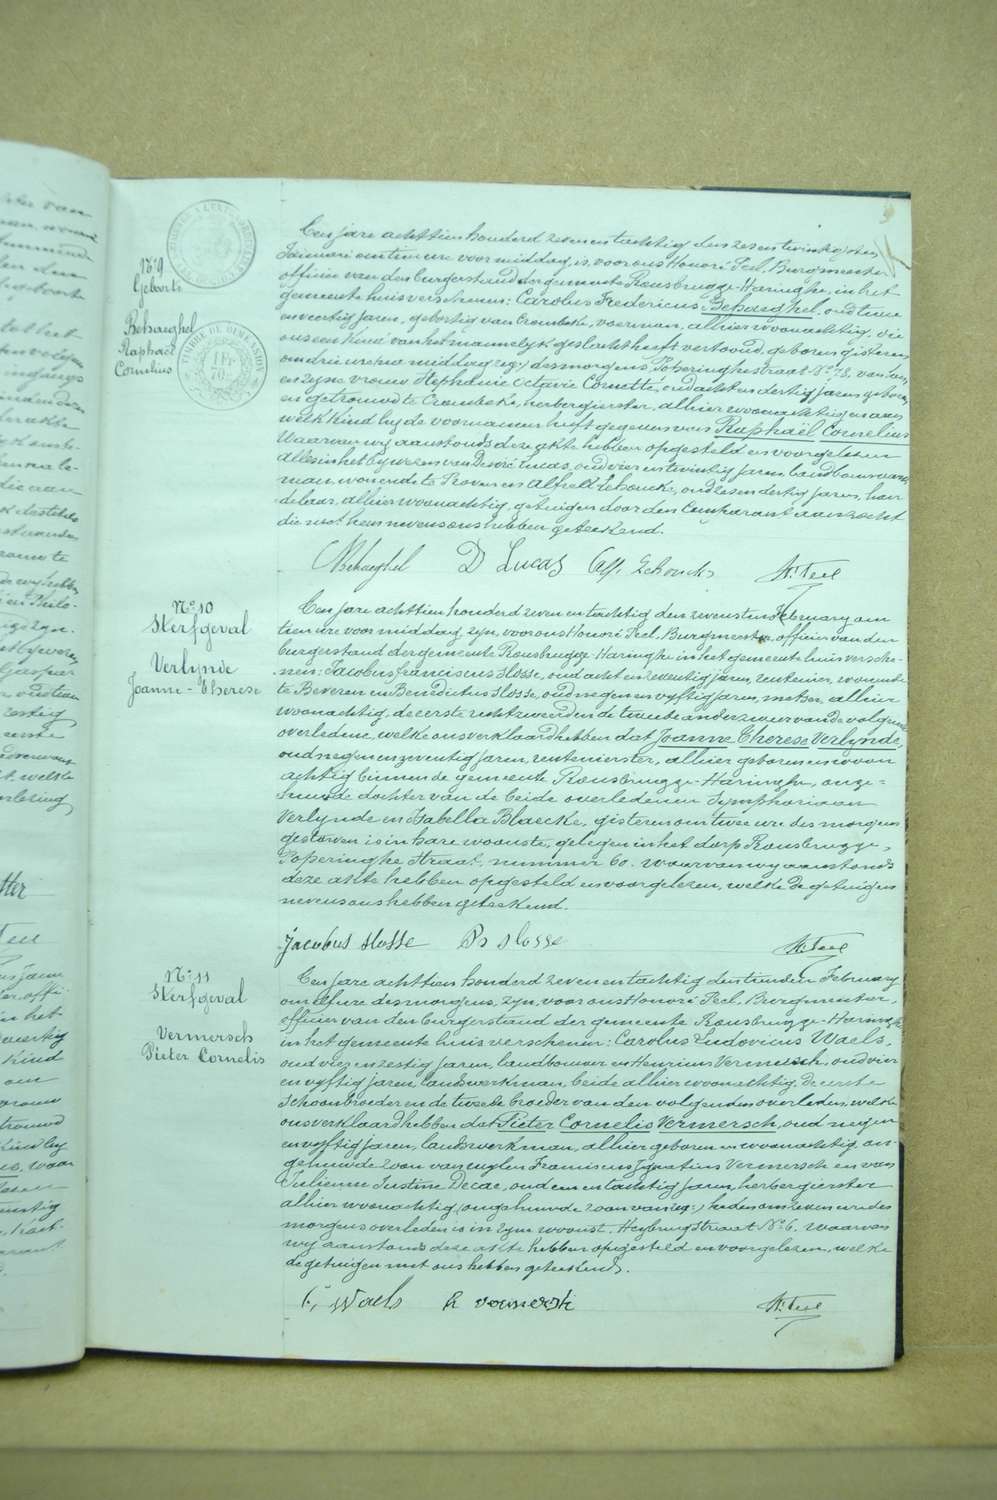 Nº 9
Geboorte
Behaeghel
Raphaël
Cornelius
TIMBRE DE DIMENSION
1 Fr
Een jare achttien honderd zeven en tachtig den zes en twintigsten
Januari om tien ure voormiddag, is, voor ons Honoré Peel, Burgmeester
officier van den burgerstand der gemeente Rousbrugge-Haringhe, in het
gemeente huis verschenen: Carolus Fredericus Behaeghel, oud
en veertig jaren, geboortig van Crombeke, voerman, alhier woonachtig, die
ons een kind van het mannelijk geslacht heeft vertoond, geboren gisteren
om drie ure des morgens, Poperinghestraat Nº 78, van hem,
en zijne vrouw Stephanie Octavie Cornette, oud acht en dertig jaren, geboren
en getrouwd te Crombeke, herbergierster, alhier woonachtig en aan
welk kind hy de voornamen heeft gegeven van Raphaël Cornelius
Waarvan wy aanstonds deze akte hebben opgesteld en voorgelezen
alles in het bywezen van Desiré Lucas, oud vier en twintig jaren, landbouwwerk
man, wonende te Proven en Alfred Dehoucke, oud zes en dertig jaren, han
delaar, alhier woonachtig, getuigen door den Comparant aanzocht
die met hem nevens ons hebben geteekend.
Behaeghel D Lucas Alf. Hr Peel
Nº 10
Sterfgeval
Verlynde
Joanne-Therese
Een jare achttien honderd zeven en tachtig den zevensten February om
tien ure voormiddag, zyn, voor ons Honoré Peel, Burgmeester, officier van den
burgerstand der gemeente Rousbrugge-Haringhe in het gemeente huis versche-
nen: Jacobus Franciscus Hosse, oud acht en zeventig jaren, rentenier, wonende
te Beveren en Benedictus Hosse, oud negen en vyftig jaren, metser, alhier
woonachtig, de eerste rechtzweer en de tweede anderzweer van de volgende
overledene, welke ons verklaard hebben dat Joanne Therese Verlynde,
oud negen en zeventig jaren, rentenierster, alhier geboren en woon
achtig binnen de gemeente Rousbrugge-Haringhe, onge=
huwde dochter van de beide overledenen Symphoriaan
Verlynde en Isabella Blaecke, gisteren om twee ure des morgens
gestorven is in hare woonste, gelegen in het dorp Rousbrugge,
Poperinghe straat, nummer 60. Waarvan wy aanstonds
deze akte hebben opgesteld en voorgelezen, welke de getuigen
nevens ons hebben geteekend.
Jacobus Hosse Bs Hosse Hr Peel
Nº 11
Sterfgeval
Vermersch
Pieter Cornelis
Een jare achttien honderd zeven en tachtig den tienden February
om elf ure des morgens, zyn, voor ons Honoré Peel, Burgmeester,
officier van den burgerstand der gemeente Rousbrugge-Haringhe
in het gemeente huis verschenen: Carolus Ludovicus Waels,
oud vier en zestig jaren, landbouwer en Henricus Vermersch, oud vier
en vyftig jaren, landswerkman, beide alhier woonachtig, de eerste
schoonbroeder en de tweede broeder van den volgenden overleden, welke
ons verklaard hebben dat Pieter Cornelis Vermersch, oud negen
en vyftig jaren, landswerkman, alhier geboren en woonachtig, on-
gehuwde zoon van wylen Franciscus Ignatius Vermersch en van
Julienne Justine Decae, oud een en tachtig jaren, herbergierster
alhier woonachtig, (ongehuwde zoon van zeg:) heden om zeven ure des
morgens overleden is in zyne woonst, Heybrugstraat Nº 6. Waarvan
wy aanstonds deze akte hebben opgesteld en voorgelezen, welke
de getuigen met ons hebben geteekend.
Waels h vermersch Hr Peel